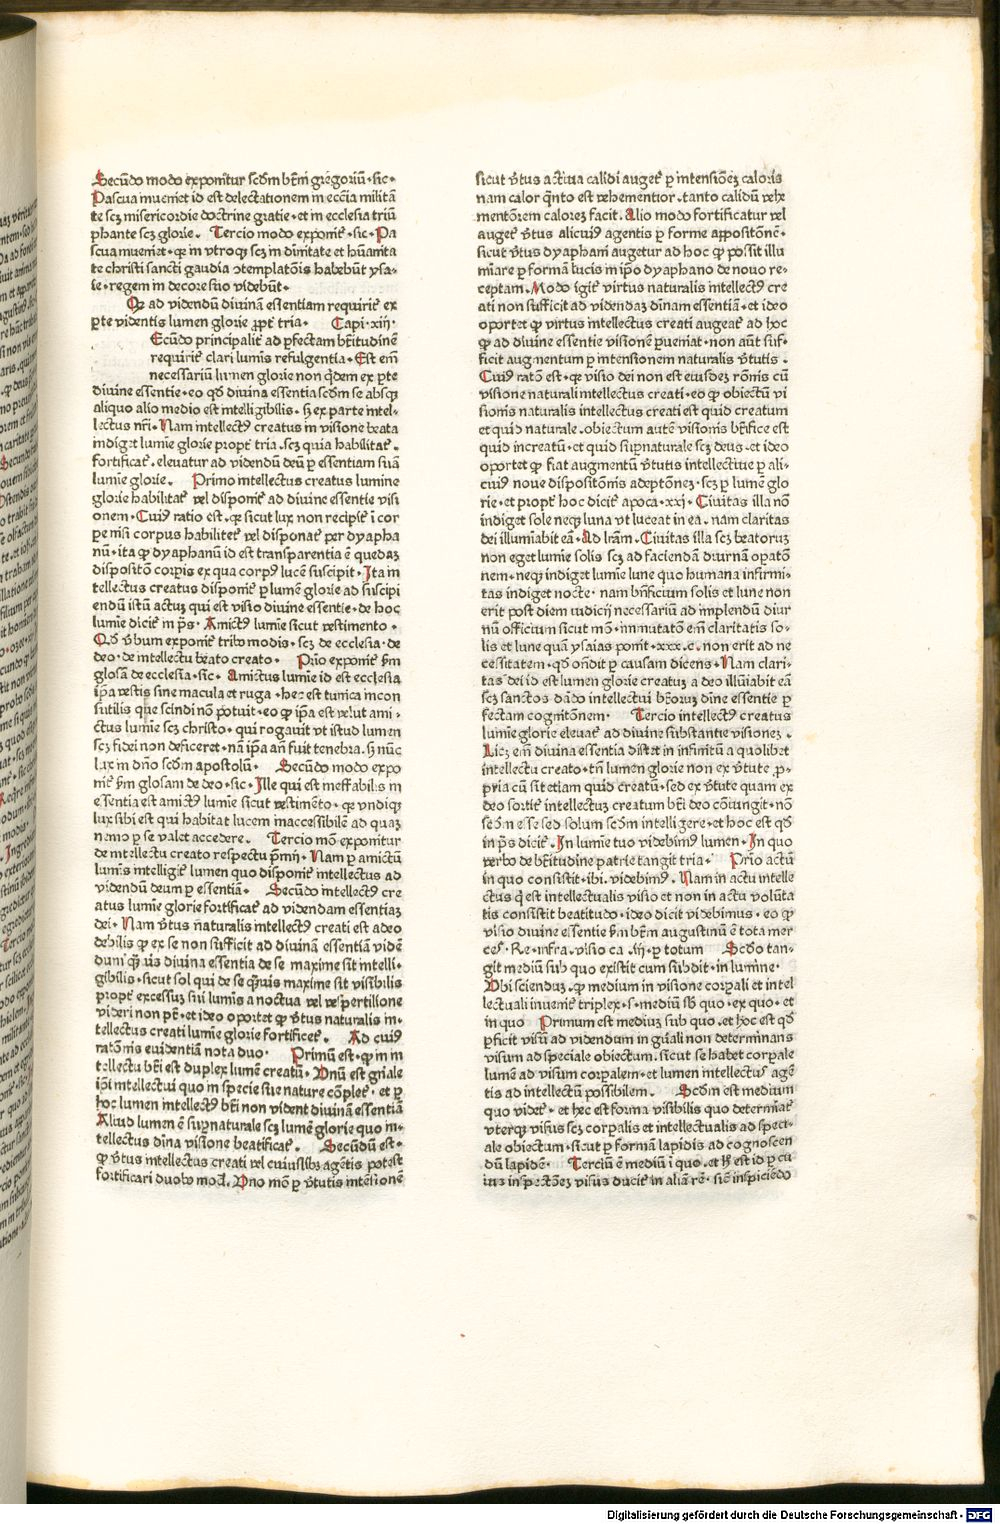 Secūdo modo exponitur scdm btm̄ gregoriū · sic ·
Pascua inueniet id est delectationem in ecc̄ia militā
te scz misericordie doctrine gratie · et in ecclesia triū
phante scz glorie . Tercio modo exponit̄ · sic · Pa
scua inueniet · qꝛ in vtroqꝫ scz in diuinitate et hūanita
te christi sancti gaudia ↄtemplatōis habebūt ysa-
ie · regem in decore suo videbūt ·
Qꝫ ad videndū diuinā essentiam requirit̄ ex
ꝑte videntis lumen glorie ꝓpt̄ tria · Capi · xij ·
Ecūdo principalit̄ ad ꝑfectam bt̄itudinē
requirit̄ clari luminis refulgentia · Est em̄
necessariū lumen glorie non qͥdem ex ꝑte
diuine essentie · eo qd̄ diuina essentia scdm se absqꝫ
aliquo alio medio est intelligibilis · sꝫ ex parte intel-
lectus nr̄i · Nam intellectꝰ creatus in visione beata
indiget lumīe glorie propt̄ tria . scz quia habilitat̄ .
fortificat̄ . eleuatur ad videndū deū ꝑ essentiam suā
lumīe glorie . Primo intellectus creatus lumine
glorie habilitat̄ vel disponit̄ ad diuine essentie visi
onem · Cuiꝰ ratio est . qꝛ sicut lux non recipit̄ ī cor
pe nisi corpus habilitet̄ vel disponat̄ per dyapha
nū · ita ꝙ dyaphanū id est transparentia ē quedaꝫ
dispositō corꝑis ex qua corpꝰ lucē suscipit · Ita in
tellectus creatus disponit̄ ꝑ lumē glorie ad suscipi
endū istū actuꝫ qui est visio diuine essentie · de hoc
lumīe dicit̄ in ps̄ · Amictꝰ lumīe sicut vestimento ·
Qd̄ v̄bum exponit̄ tribꝰ modis · scz de ecclesia · de
deo · de intellectu beato creato · Prīo exponit̄ s̄m
glosā de ecclesia · sic · Amictus lumīe id est ecclesia
ip̄a vestis sine macula et ruga · hec est tunica incon
sutilis que scindi nō potuit · eo ꝙ ip̄a est velut ami-
ctus lumīe scz christo · qui rogauit vt istud lumen
scz fidei non deficeret · nā ip̄a an̄ fuit tenebra · sꝫ nūc
lux in dn̄o scdm apostolū · Secūdo modo expo
nit̄ s̄m glosam de deo · sic · Ille qui est ineffabilis in
essentia est amictꝰ lumīe sicut vestimēto · qꝛ vndiqꝫ
lux sibi est qui habitat lucem inaccessibilē ad quaꝫ
nemo ꝑ se valet accedere . Tercio mō exponitur
de intellectu creato respectu p̄mij · Nam ꝑ amictū
luminis intelligit̄ lumen quo disponit̄ intellectus ad
videndū deum ꝑ essentiā · Secūdo intellectꝰ cre
atus lumīe glorie fortificat̄ ad videndam essentiaꝫ
dei · Nam v̄tus naturalis intellectꝰ creati est adeo
debilis ꝙ ex se non sufficit ad diuinā essentiā viden
dum qͣuis diuina essentia de se maxime sit intelli-
gibilis · sicut sol qui de se qͣuis maxime sit visibilis
propt̄ excessuꝫ sui luminis a noctua vel vespertilione
videri non pōt · et ideo oportet ꝙ v̄tus naturalis in-
tellectus creati lumīe glorie fortificet̄ . Ad cuiꝰ
ratōnis euidentiā nota duo · Primū est · ꝙ in in
tellectu bt̄i est duplex lumē creatū · Vnū est gn̄ale
ip̄i intellectui quo in specie sue nature cōplet̄ · et ꝑ
hoc lumen intellectꝰ bt̄i non vident diuinā essentiā
Aliud lumen ē suꝑnaturale scz lumē glorie quo in-
tellectus diīna visione beatificat̄ . Secūdū est ·
ꝙ v̄tus intellectus creati vel cuiuslibꝫ agētis potest
fortificari duobꝰ mōd . Vno mō ꝑ v̄tutis intēsionē
sicut v̄tus actiua calidi auget̄ ꝑ intensiōeꝫ caloris
nam calor qͣnto est vehementior . tanto calidū vehe
mentiorem caloreꝫ facit . Alio modo fortificatur vel
auget̄ v̄tus alicuiꝰ agentis ꝑ forme appositōnē ·
sicut v̄tus dyaphani augetur ad hoc ꝙ possit illu
minare ꝑ formā lucis in ip̄o dyaphano de nouo re-
ceptam . Modo igit̄ virtus naturalis intellectꝰ cre
ati non sufficit ad videndaꝫ diīnam essentiā · et ideo
oportet ꝙ virtus intellectus creati augeat̄ ad hoc
ꝙ ad diuine essentie visionē ꝑueniat · non aūt suf-
ficit augmentum ꝑ intensionem naturalis v̄tutis .
Cuiꝰ ratō est · qꝛ visio dei non est eiusdeꝫ rōnis cū
visione naturali intellectus creati · eo ꝙ obiectū vi
sionis naturalis intellectus creati est quid creatum
et quid naturale . obiectum autē visionis bt̄ifice est
quid increatū · et quid suꝑnaturale scz deus · et ideo
oportet ꝙ fiat augmentū v̄tutis intellectiue ꝑ ali-
cuiꝰ noue dispositōnis adeptōneꝫ · scz ꝑ lumē glo
rie · et propt̄ hoc dicit̄ apoca · xxj · Ciuitas illa nō
indiget sole neqꝫ luna vt luceat in ea . nam claritas
dei illumīabit eā · Ad lr̄am . Ciuitas illa scz beatoruꝫ
non eget lumīe solis scz ad faciendā diurnā oꝑatō
nem · neqꝫ indiget lumīe lune quo humana infirmi-
tas indiget nocte · nam bn̄ficium solis et lune non
erit post diem iudicij necessariū ad implendū diur
nū officium sicut mō · īmutatōem em̄ claritatis so-
lis et lune quā ysaias ponit · xxx . c . non erit ad ne
cessitatem · qd̄ on̄dit ꝑ causam dicens · Nam clari-
tas dei id est lumen glorie creatuꝫ a deo illūīabit eā
scz sanctos dādo intellectui bt̄oruꝫ diīne essentie ꝑ
fectam cognitōnem · Tercio intellectꝰ creatus
lumīe glorie eleuat̄ ad diuine substantie visioneꝫ .
Licꝫ em̄ diuina essentia distet in infinitū a quolibet
intellectu creato · tn̄ lumen glorie non ex v̄tute ꝓ-
pria cū sit etiam quid creatū · sed ex v̄tute quam ex
deo sortit̄ intellectuꝫ creatum bt̄i deo cōiungit · nō
scdm esse sed solum scdm intelligere · et hoc est qd̄
in ps̄ dicit̄ · In lumīe tuo videbimꝰ lumen · In quo
verbo de bt̄itudine patrie tangit tria · Prīo actū
in quo consistit · ibi · videbimꝰ . Nam in actu intelle
ctus qͥ est intellectualis visio et non in actu volūta
tis consistit beatitudo · ideo dicit videbimus · eo ꝙ
visio diuine essentie s̄m bt̄m augustinū ē tota mer
ces̄ · Re · infra · visio ca · iij · ꝑ totum Scdo tan-
git mediū sub quo existit cum subdit · in lumine ·
Vbi scienduꝫ · ꝙ medium in visione corꝑali et intel
lectuali inuenit̄ triplex · s · mediū sb̄ quo · ex quo · et
in quo Primum est mediuꝫ sub quo . et hoc est qd̄
ꝑficit visū ad videndum in gn̄ali non determinans
visum ad speciale obiectum . sicut se habet corꝑale
lumē ad visum corꝑalem · et lumen intellectus agē
tis ad intellectū possibilem . Scdm est medium
quo videt̄ · et hec est forma visibilis quo determiat̄
vterqꝫ visus scz corꝑalis et intellectualis ad speci-
ale obiectum · sicut ꝑ formā lapidis ad cognoscen
dū lapidē · Terciū ē mediū ī quo . et hͦ est id ꝑ cu
ius inspectōeꝫ visus ducit̄ in aliā rē · sic̄ inspiciēdo
Digitalisierung gefördert durch die Deutsche Forschungsgemeinschaft - DFG